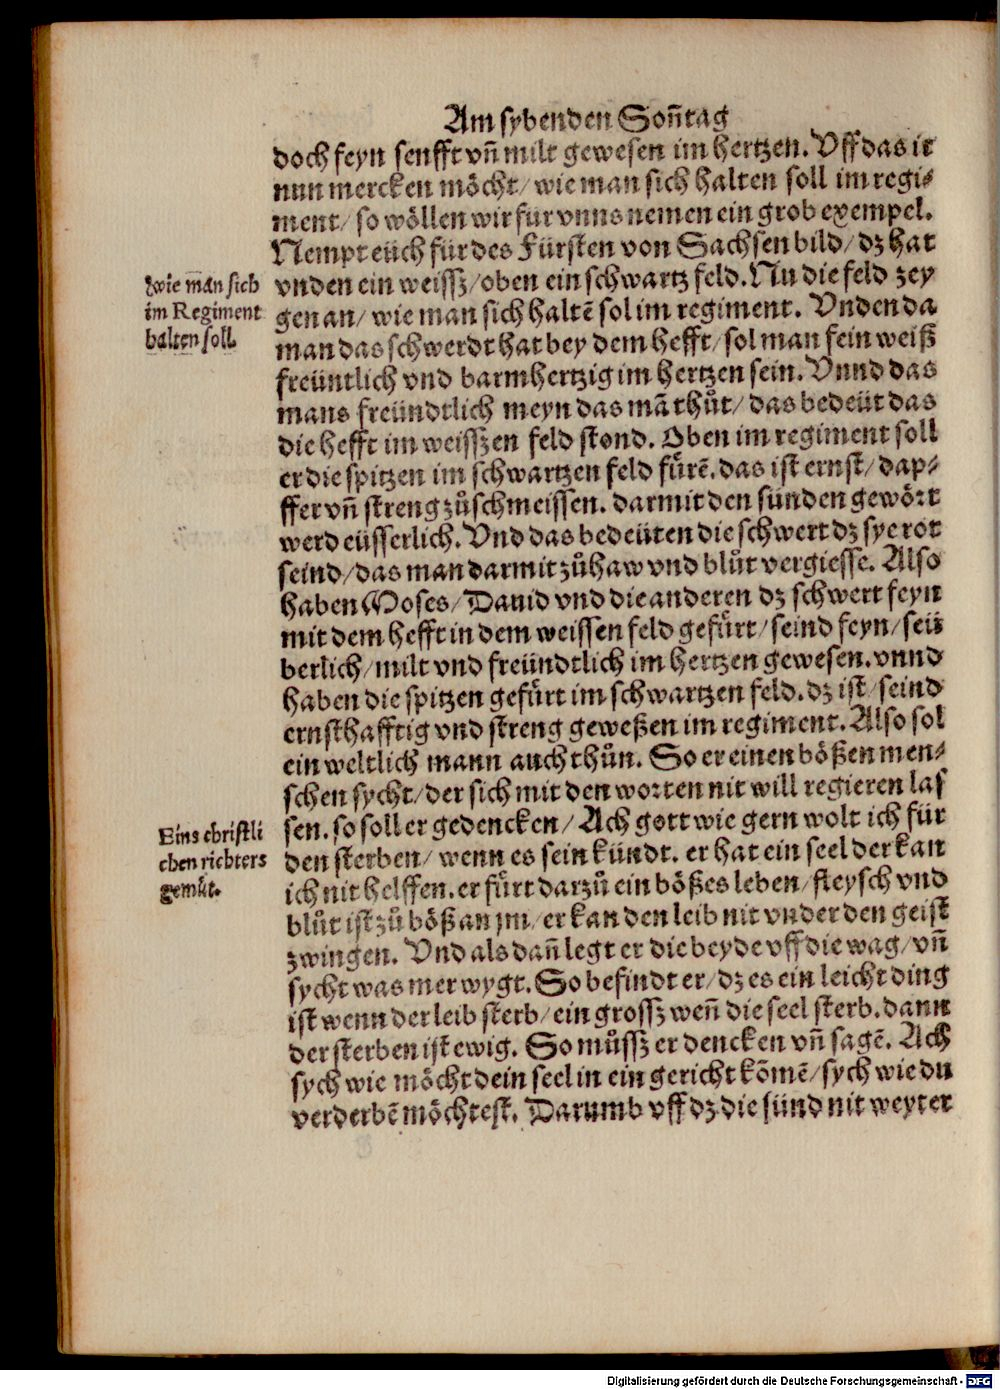 Am sybenden Soñtag
doch feyn senfft vñ milt gewesen im hertzen. Vff das ir
nun mercken möcht/ wie man sich halten soll im regi-
ment/ so wöllen wir für vnns nemen ein grob exempel.
Nempt eüch für des Fürsten von Sachsen bild/ dz hat
wie man sich
im Regiment
halten soll.
vnden ein weissz/ oben ein schwartz feld. Nu die feld zey
gen an/ wie man sich haltē sol im regiment. Vnden da
man das schwerdt hat bey dem hefft/ sol man fein weiß
freüntlich vnd barmhertzig im hertzen sein. Vnnd das
mans freündtlich meyn das mā thůt/ das bedeüt das
die hefft im weisszen feld stond. Oben im regiment soll
er die spitzen im schwartzen feld fürē. das ist ernst/ dap-
ffer vñ streng zůschmeissen. darmit den sünden gewört
werd eüsserlich. Vnd das bedeüten die schwert dz sye rot
seind/ das man darmit zůhaw vnd blůt vergiesse. Also
haben Moses/ Dauid vnd die anderen dz schwert feyn
mit dem hefft in dem weissen feld gefürt/ seind feyn/ seü
berlich/ milt vnd freündtlich im hertzen gewesen. vnnd
haben die spitzen gefürt im schwartzen feld. dz ist/ seind
ernsthafftig vnd streng geweßen im regiment. Also sol
ein weltlich mann auch thůn. So er einen bößen men-
schen sycht/ der sich mit den worten nit will regieren las
Eins christli
chen richters
gemůt.
sen. so soll er gedencken/ Ach gott wie gern wolt ich für
den sterben/ wenn es sein kündt. er hat ein seel der kan
ich nit helffen. er fürt darzů ein bößes leben/ fleysch vnd
blůt ist zů böß an jm/ er kan den leib nit vnder den geist
zwingen. Vnd als dañ legt er die beyde vff die wag/ vñ
sycht was mer wygt. So befindt er/ dz es ein leicht ding
ist wenn der leib sterb/ ein grossz weñ die seel sterb. dann
der sterben ist ewig. So můssz er dencken vñ sagē. Ach
sych wie möcht dein seel in ein gericht kōmē/ sych wie du
verderbē möchtest. Darumb vff dz die sünd nit weyter
Digitalisierung gefördert durch die Deutsche Forschungsgemeinschaft - DFG